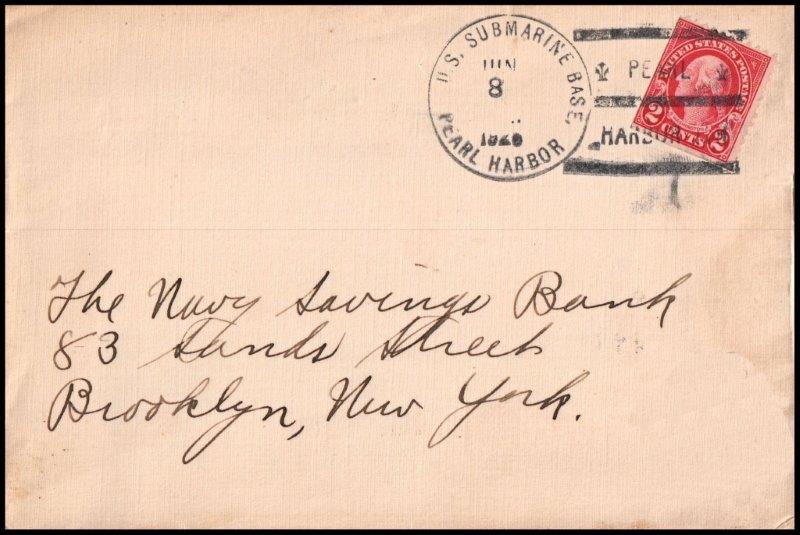 U.S. SUBMARINE BASE,
JUN
8
PEARL HARBOR
PEARL
HARBOR
UNITED STATES POSTAGE
2 CENTS 2
The Navy Savings Bank
83 Sands Street
Brooklyn, New York.